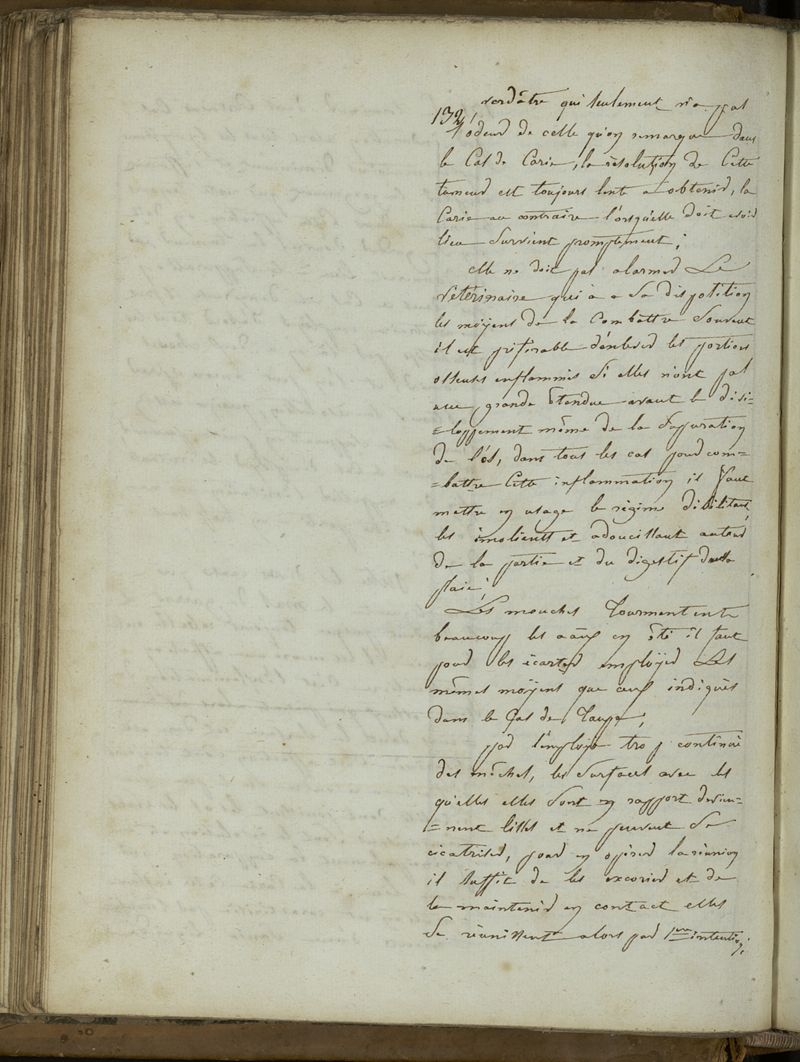 verdâtre qui seulement n'a pas
132
l'odeur de celle qu'on remarque dans
le Cas de Carie, la résolution de Cette
tumeur est toujours lente a obtenir, la
Carie au contraire l'orsqu'elle doit avoir
lieu survient promptement;
elle ne doit pas alarmer Le
vétérinaire qui à a Sa disposition
les moÿens de la Combattre Souvent
il est préférable d'enlever les portions
osseuses enflammés Si elles n'ont pas
une grande étendue avant le déve=
=loppement même de la Supuration
de l'os, dans tous les cas pour com=
=battre Cette inflammation il faut
mettre en usage le régime débilitant,
les émolients et adoucissant autour
de la partie et du digestif dans la
plaie;
Les mouches tourmentente
beaucoup les en été il faut
pour les écarter employer Les
mêmes moÿens que ceux indiqués
dans le Cas de Taupe;
par l'emploie trop continué
des mêches, les Surfaces avec les
qu'elles elles Sont en rapport devien=
=nent lisses et ne peuvent Se
cicatriser, pour en opérer la réunion
il Suffit de les excorier et de
le maintenir en contact elles
Se réunissent alors par 1ere intention;